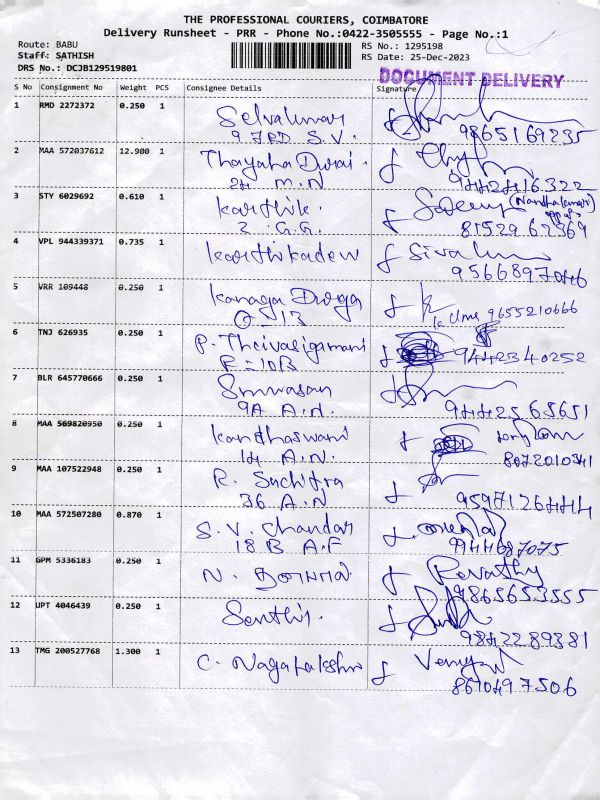 THE PROFESSIONAL COURIERS, COIMBATORE
Delivery Runsheet - PRR - Phone No.:0422-3505555 - Page No.:1
Route: BABU
Staff: SATHISH
DRS No.: DCJB129519801
RS No.: 1295198
RS Date: 25-Dec-2023
DOCUMENT DELIVERY
S No Consignment No Weight PCS Consignee Details Signature
1 RMD 2272372 0.250 1
Selvakumar
9 FRD S.V.
9865169235
2 MAA 572037612 12.900 1
Thayaha Durai.
24 M.N
9442416322
3 STY 6029692 0.610 1
Karthik.
2 G.G.
(Nandhakumari)
8152962369
4 VPL 944339371 0.735 1
Karthikadevi
Siva
9566897046
5 VRR 109448 0.250 1
Kanaga Durga
O-13
9655210666
6 TNJ 626935 0.250 1
P. Theivasigamani
R=10B
9442340252
7 BLR 645770666 0.250 1
Srinivasan
9A A.N.
9442565651
8 MAA 569820950 0.250 1
Kandhaswami
14 A.N.
8072010341
9 MAA 107522948 0.250 1
R. Suchitra
36 A.N
9597126444
10 MAA 572507280 0.870 1
S.V. Chandar
18 B A.F
944687075
11 GPM 5336183 0.250 1
N.
Revathy
9865653555
12 UPT 4046439 0.250 1
Senthil.
9842289381
13 TMG 200527768 1.300 1
C. Nagalakshmi
8610497506